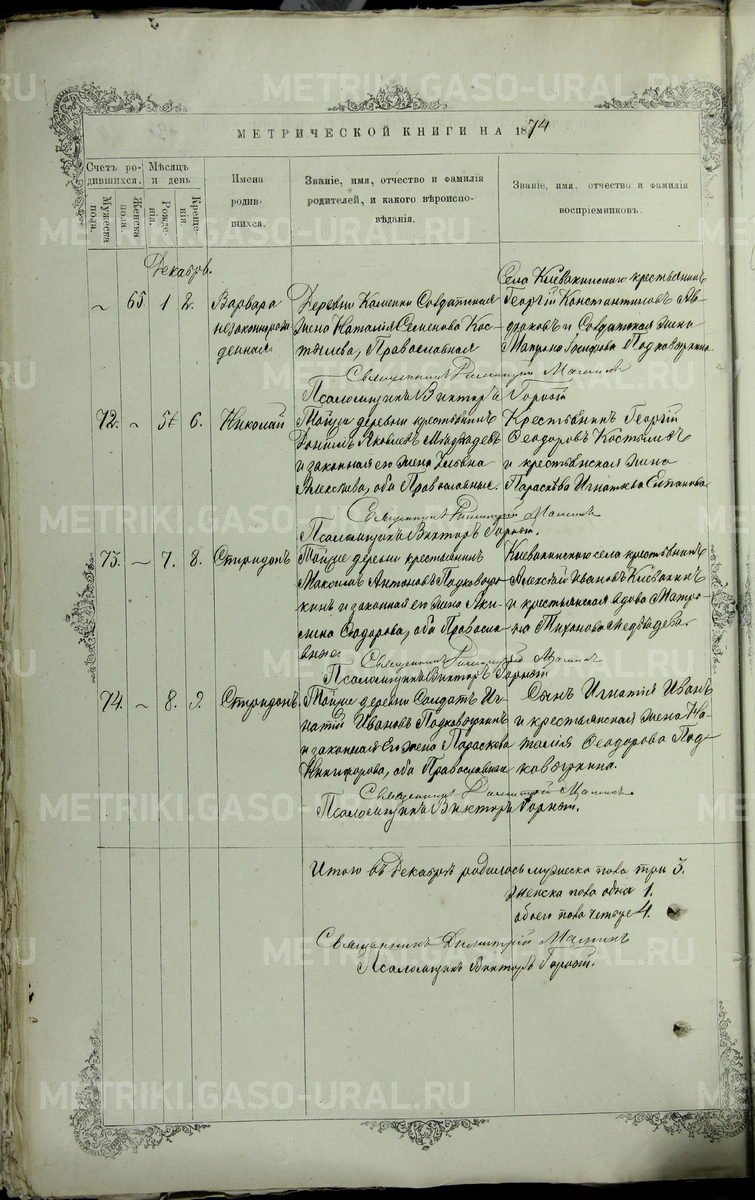 METRIKI.GASO-URAL.RU
МЕТРИЧЕСКОЙ КНИГИ НА 1874
Счетъ родившихся.
Мужеска пола.
Женска пола.
Мѣсяцъ и день
Рожденія.
Крещенія.
Имена родившихся.
Званіе, имя, отчество и фамилія родителей, и какого вѣроисповѣданія.
Званіе, имя, отчество и фамилія воспріемниковъ.
Декабрь.
~ 65 1 2. Варвара незаконнорожденная.
Деревни Каменки Солдатская
жена Наталія Семенова Кос-
тылева, Православная
Села Клевакинскаго крестьянинъ
Георгій Константиновъ
и Солдатская жена
Матрона Подковыркина
Священникъ Димитрій Маминъ
Псаломщикъ Викторъ
72. ~ 5 6. Николай
Тойже деревни крестьянинъ
Даніилъ Яковлевъ Медвѣдевъ
и законная его жена
Алексѣева, оба Православные.
Крестьянинъ Георгій
Ѳеодоровъ Костылевъ
и крестьянская жена
Параскева Игнатьева
Священникъ Димитрій Маминъ
Псаломщикъ Викторъ
73. ~ 7. 8. Спиридонъ
Тойже деревни крестьянинъ
Максимъ Антоновъ Подковыр-
кинъ и законная его жена Аки-
лина Ѳедорова, оба Правосла-
вные.
Клевакинскаго села крестьянинъ
Алексѣй Ивановъ Клевакинъ
и крестьянская вдова Матро-
на Тихонова Медвѣдева
Священникъ Димитрій Маминъ
Псаломщикъ Викторъ
74. ~ 8. 9. Спиридонъ.
Тойже деревни Солдатъ Иг-
натій Ивановъ Подковыркинъ
и законная его жена Параскева
Никифорова, оба Православные
Сынъ Игнатія Иванъ
и крестьянская жена На-
талія Ѳеодорова Под-
ковыркина.
Священникъ Димитрій Маминъ
Псаломщикъ Викторъ
Итого въ Декабрѣ родилось мужеска пола три 3.
женска пола одна 1.
обоего пола четыре 4.
Священникъ Димитрій Маминъ
Псаломщикъ Викторъ